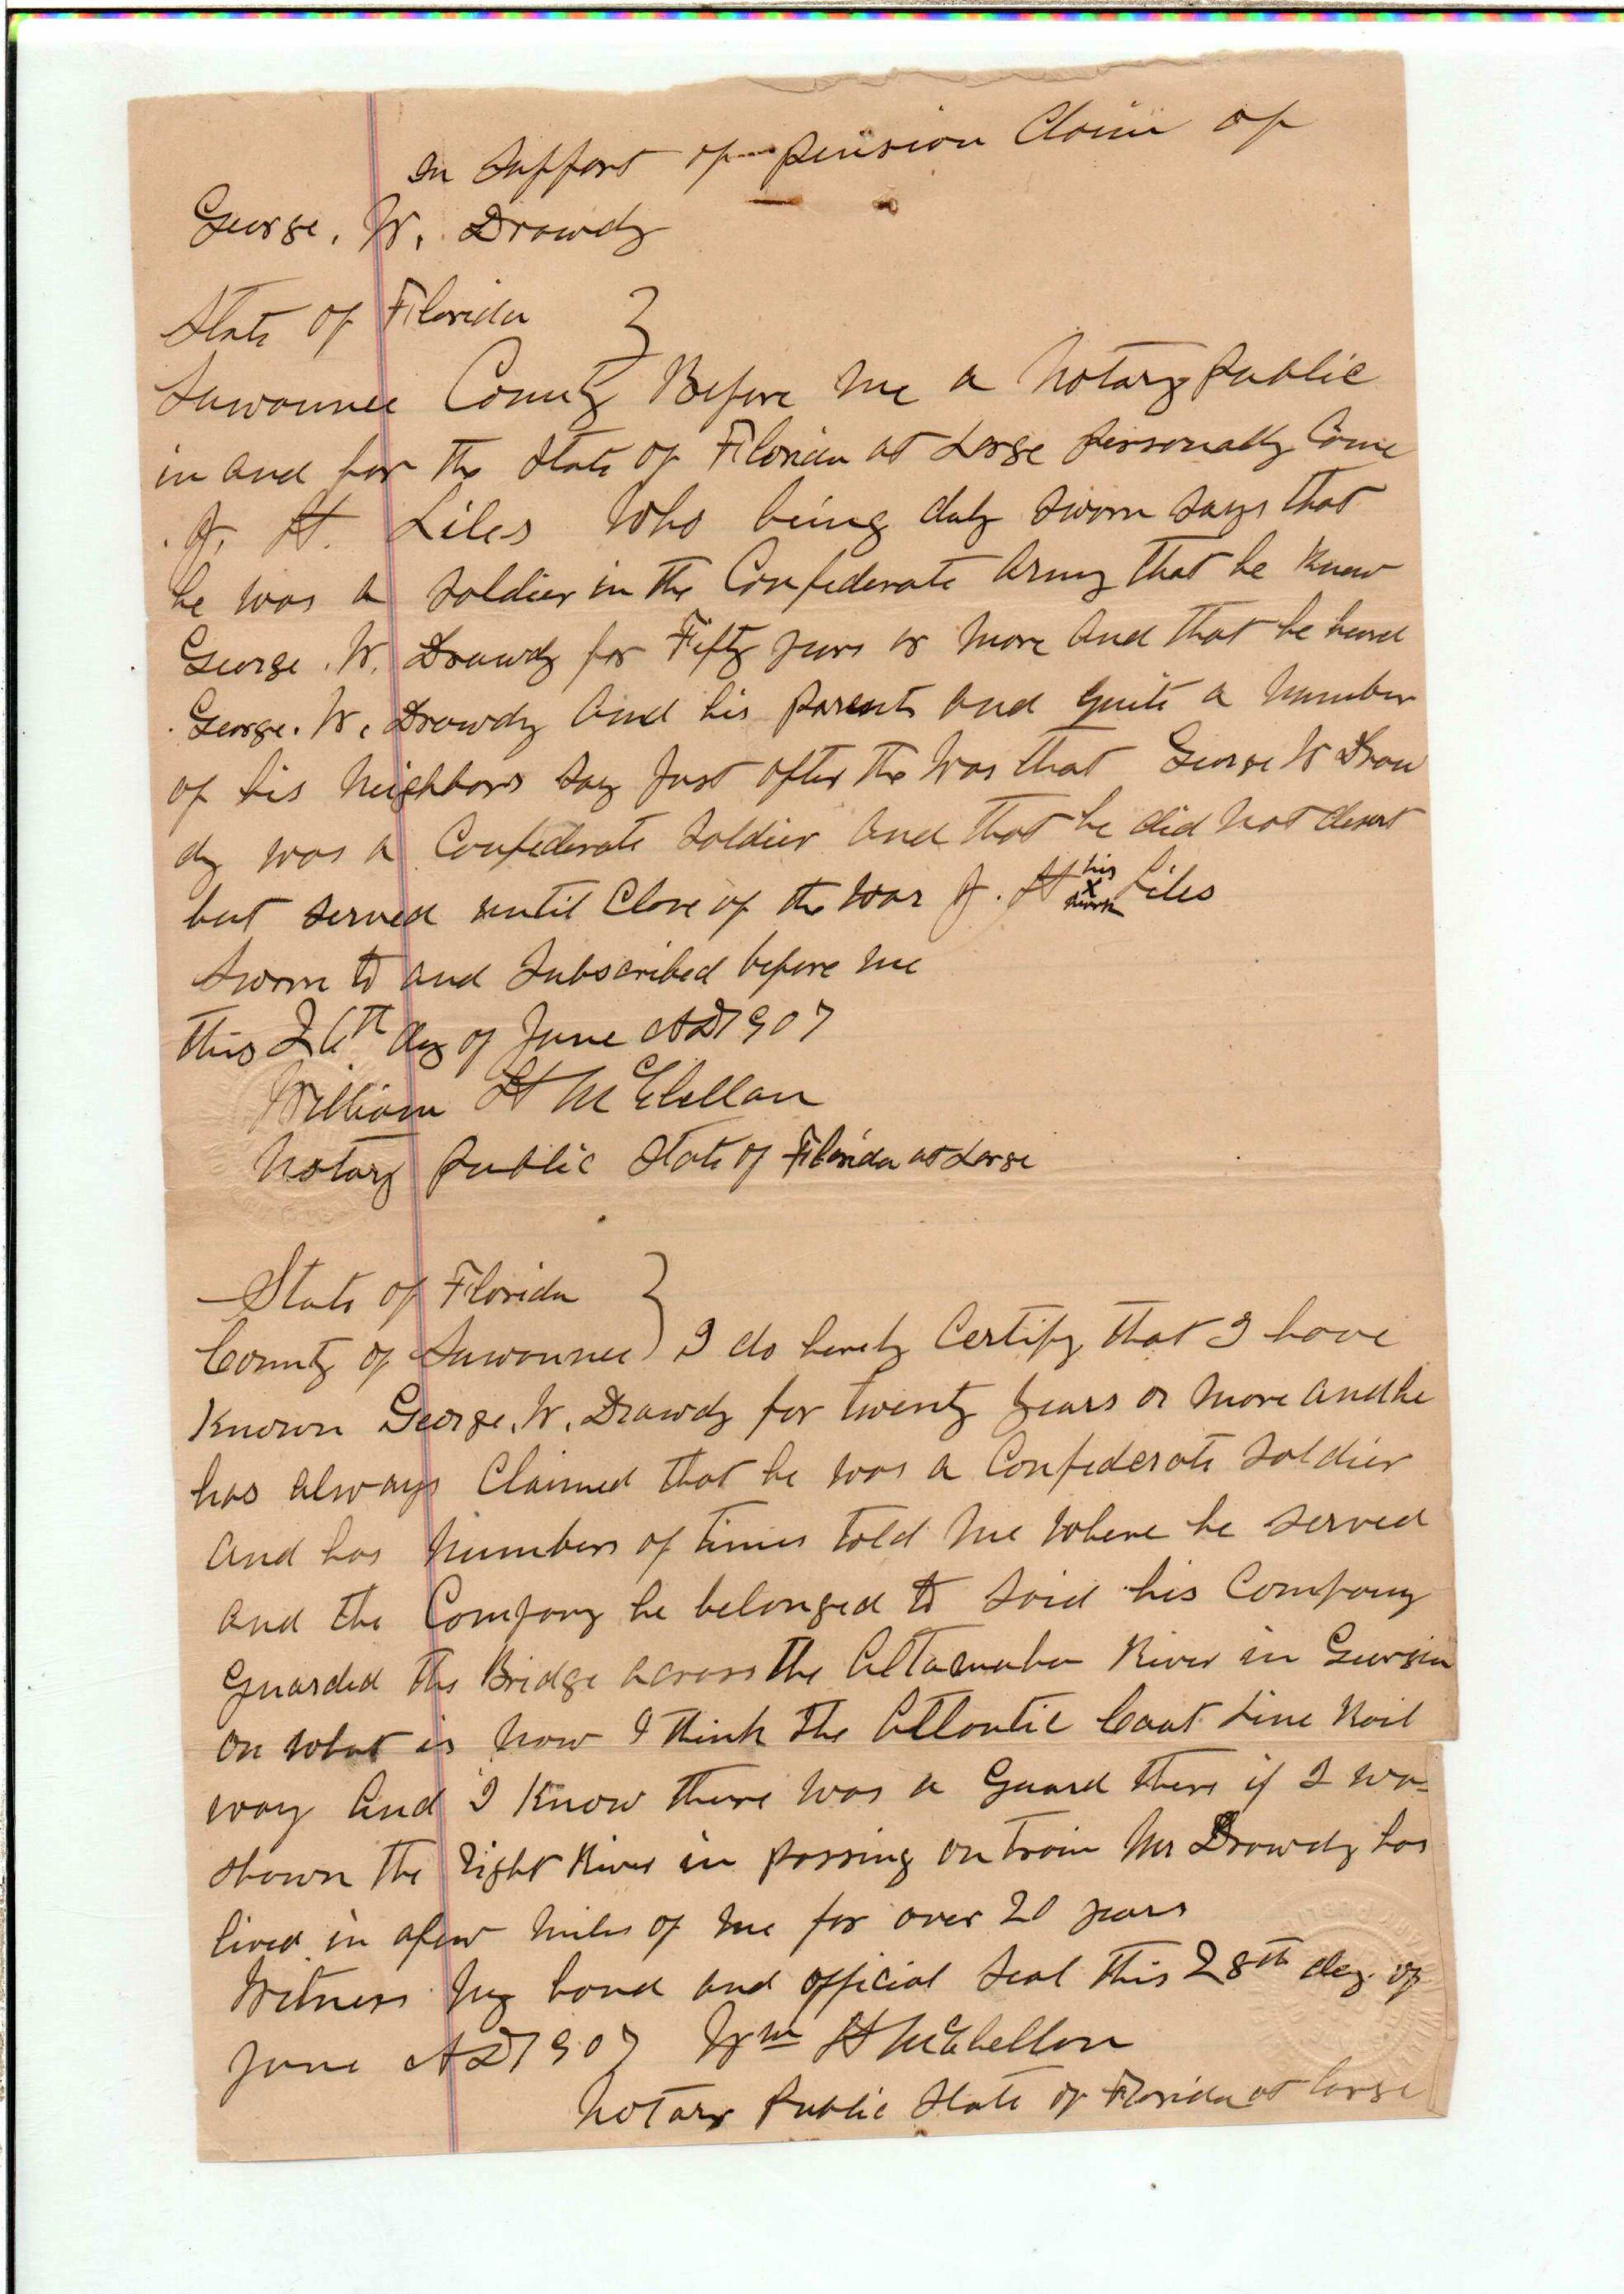 In Support of pension Claim of
George. W. Drawdy
State of Florida }
Suwannee County Before me a Notary Public
in and for the State of Florida at Large personally Come
J. H. Liles Who being duly sworn says that
he was a soldier in the Confederate Army that he knew
George. W. Drawdy for Fifty years or more and that he heard
George. W. Drawdy and his parents and quite a number
of his Neighbors say Just after the War that George W Draw
dy was a Confederate Soldier and that he did not desert
but served until Close of the War J. H his x mark Liles
Sworn to and Subscribed before me
This 26th day of June AD 1907
William H McClellan
Notary Public State of Florida at Large
State of Florida }
County of Suwannee } I do hereby Certify that I have
Known George. W. Drawdy for twenty years or more and he
has always Claimed that he was a Confederate Soldier
and has numbers of times told me where he served
and the Company he belonged to said his Company
guarded the Bridge across the Altamaha River in Georgia
on what is now I think the Atlantic Coat Line Rail
way and I Know there was a Guard there if I wa
shown the right River in passing on train Mr Drawdy has
lived in afew miles of me for over 20 years
Witness my hand and official Seal this 28th day of
June AD 1907 Wm H McClellan
Notary Public State of Florida at large